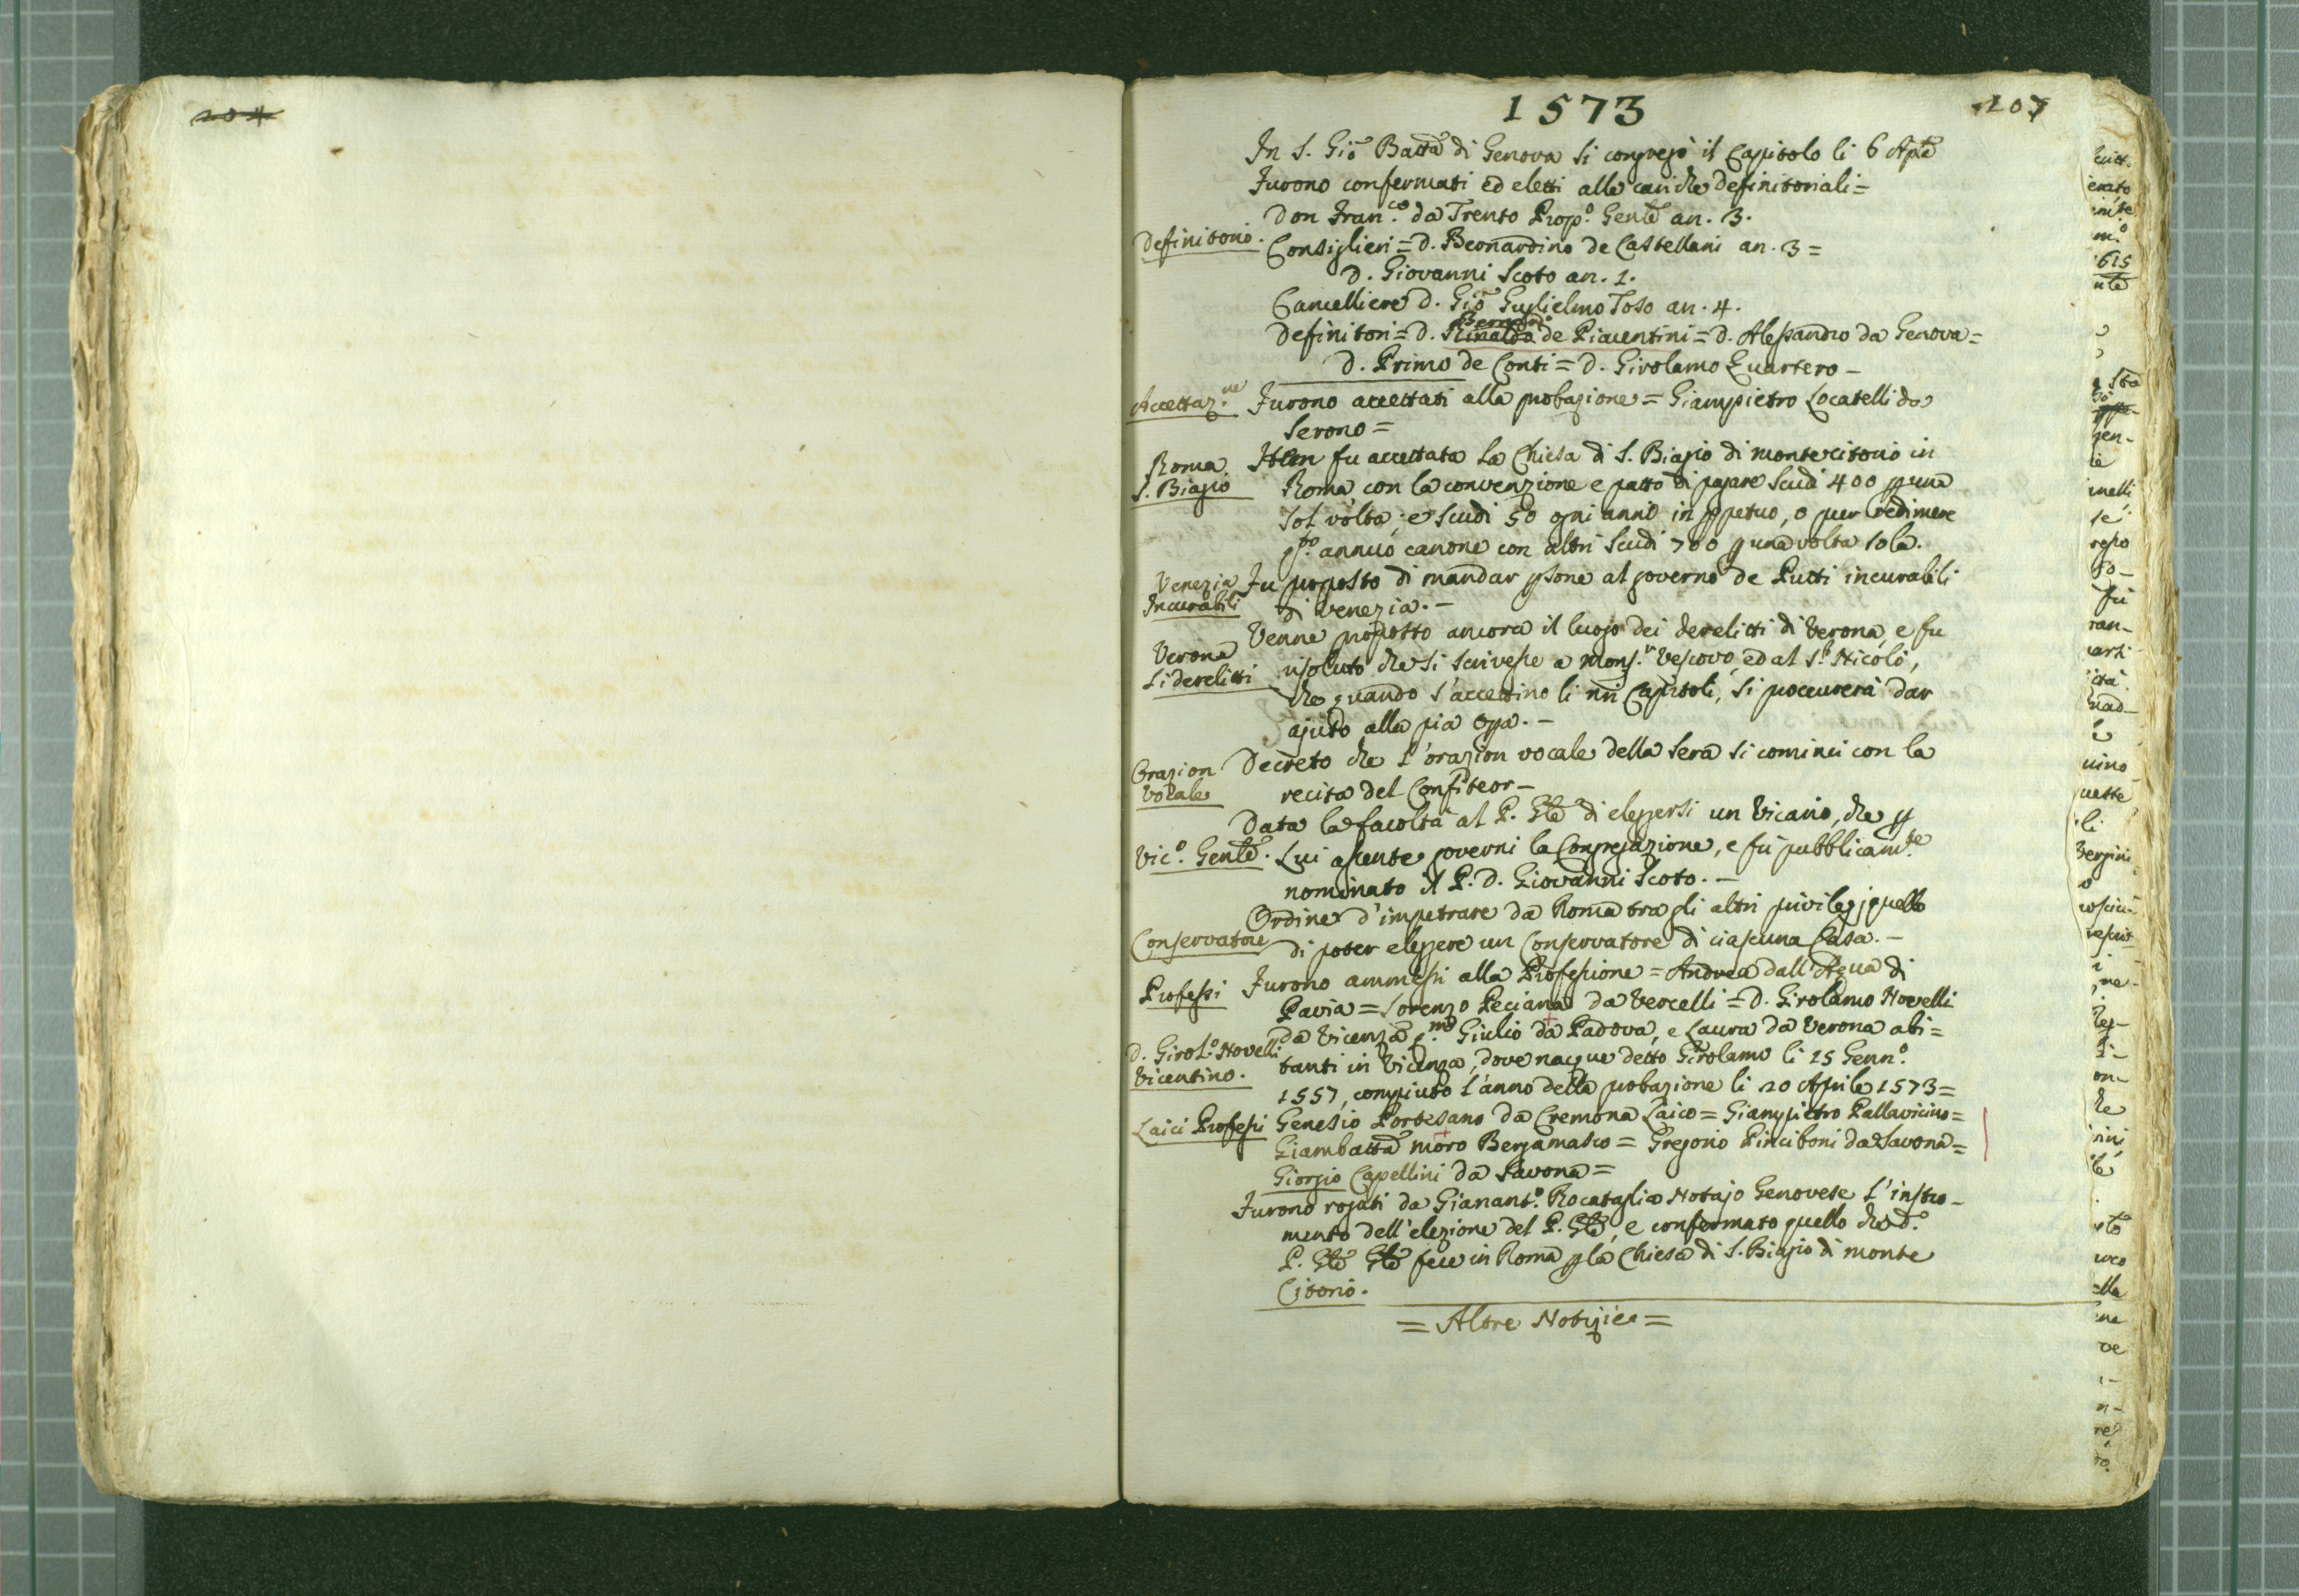 204
1573
107
In S. Gio Batta di Genova si congregò il Capitolo li 6 Aple
Furono confermati ed eletti alle cariche definitoriali =
Don Fran.co da Trento Prop.o Genle an. 3.
Definitorio.
Consiglieri = D. Bernardino de Castellani an. 3 =
D. Giovanni Scoto an. 1.
Cancelliere D. Gio Guglielmo Toso an. 4.
Definitori = D. Rinaldo de Piacentini = D. Alessandro da Genova =
D. Primo de Conti = D. Girolamo Quartero -
Accettaz.ne
Furono accettati alla probazione = Giampietro Locatelli da
Serono =
Roma
S. Biagio
Item fu accettata la Chiesa di S. Biagio di montecitorio in
Roma con la convenzione e patto di pagare Scudi 400 p una
sol volta; e scudi 50 ogni anno in ppetuo, o per redimere
annuo canone con altri Scudi 700 p una volta sola.
Venezia
Incurabili
Fu proposto di mandar psone al governo de Putti incurabili
di Venezia. -
Verona
Li derelitti
Venne proposto ancora il luogo dei derelitti di Verona, e fu
risoluto che si scrivesse a Mons.r Vescovo, ed al S.r Nicolò,
che quando s'accettino li nri Capitoli, si proccurerà dar
ajuto alla pia opa. -
Orazion
Vocale
Decreto che l'orazion vocale della sera si cominci con la
recita del Confiteor -
Data la facoltà al P. Gle di eleggersi un Vicario, che p
Vic.o Genle.
Lui assente governi la Congregazione, e fù pubblicam.te
nominato il P. D. Giovanni Scoto. -
Ordine d'impetrare da Roma tra gli altri privilegj quello
Conservatore
di poter eleggere un Conservatore di ciascuna Casa. -
Professi
Furono ammessi alla Professione = Andrea dall'Aqua di
Pavia = Lorenzo Peciana da Vercelli = D. Girolamo Novelli
D. Girol.o Novelli
Vicentino.
da Vicenza Giulio da Padova, e Laura da Verona abi =
tanti in Vicenza, dove nacque detto Girolamo li 15 Genn.o
1557, compiuto l'anno della probazione li 20 Aprile 1573 =
Laici Professi
Genesio Portesano da Cremona Laico = Giampietro Pallavicino =
Giambatta moro Bergamasco = Gregorio Pinciboni da Savona =
Giorgio Capellini da Savona =
Furono rogati da Gianant.o Rocataglia Notajo Genovese l'instro -
mento dell'elezione del P. Gle, e confermato quello che d.o
P. Gle Gle fece in Roma p la Chiesa di S. Biagio di monte
Citorio.
= Altre Notizie =